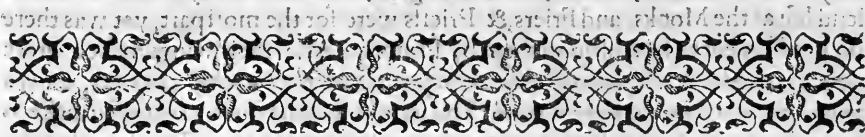 the Mocks, and Friers, & Priests were for the most part, yet was there